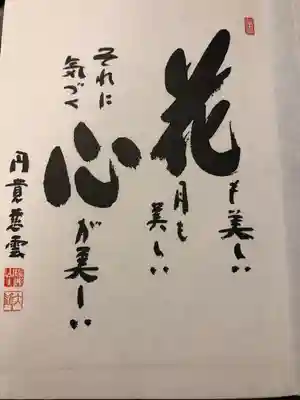 花も美しい
月も美しい
それに
気づく
心が美しい